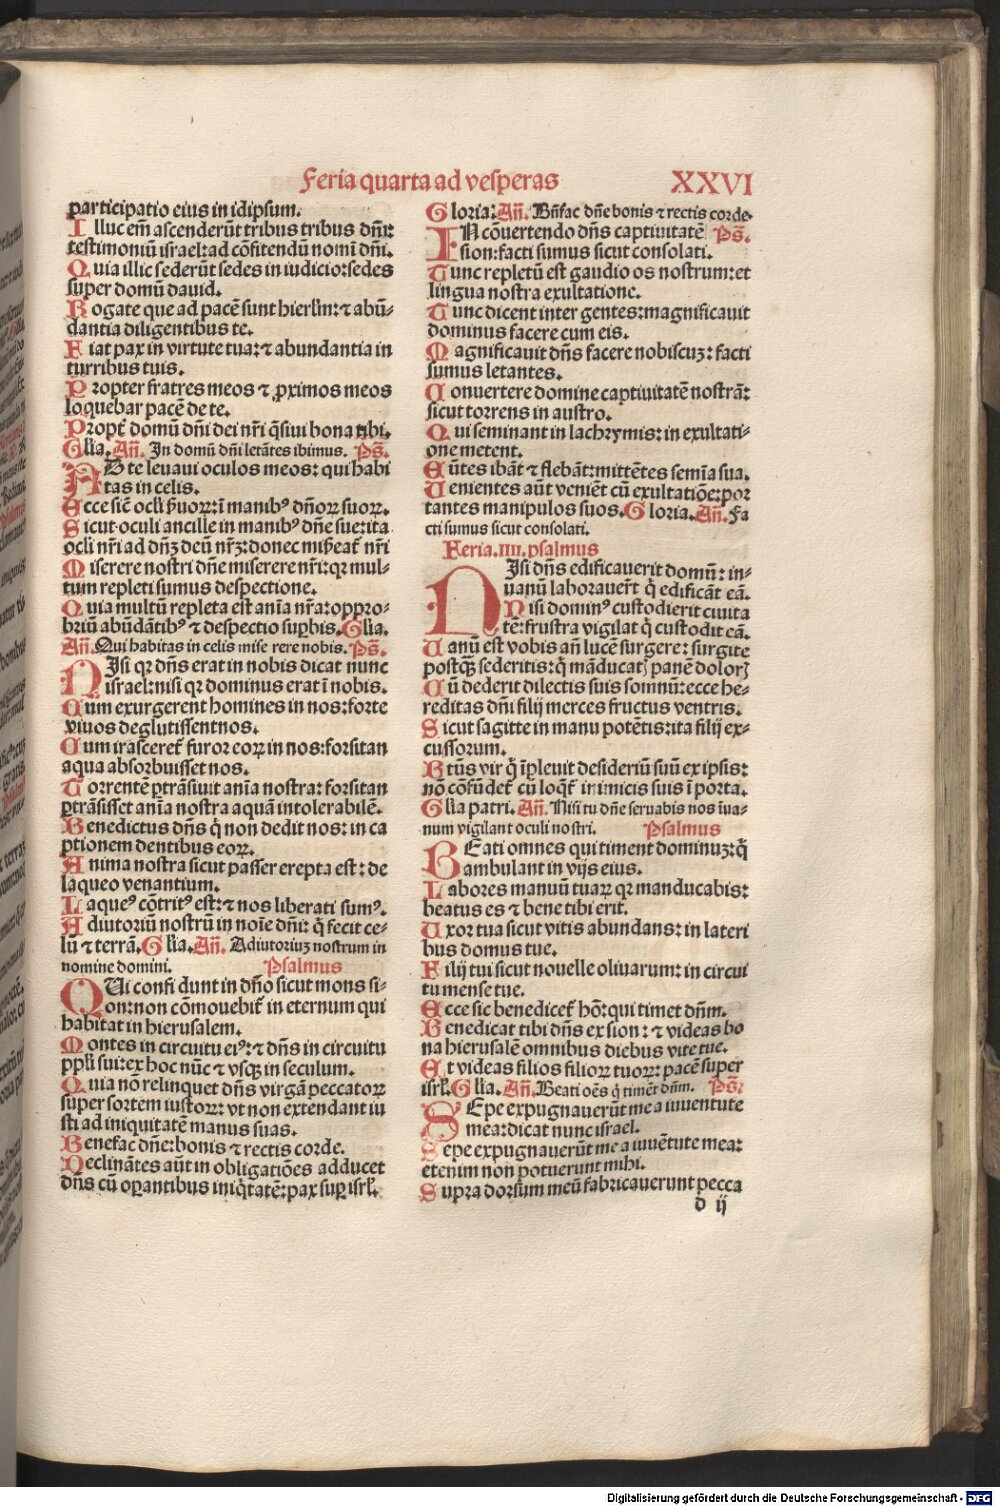 Feria quarta ad vesperas XXVI
participatio eius in idipsum.
Illuc em̃ ascenderũt tribus tribus dñi:
testimoniũ israel: ad cõfitendũ nomĩ dñi.
Quia illic sederũt sedes in iudicio: sedes
super domũ dauid.
Rogate que ad pacẽ sunt hierl̃m: ⁊ abũ-
dantia diligentibus te.
Fiat pax in virtute tua: ⁊ abundantia in
turribus tuis.
Propter fratres meos ⁊ ꝓximos meos
loquebar pacẽ de te.
Propt̃ domũ dñi dei nr̃i q̃siui bona tibi.
Gl̃ia. Añ. In domũ dñi letãtes ibimus. Ps̃.
AD te leuaui oculos meos: qui habi
tas in celis.
Ecce sic̃ ocl̃i ẜuoꝝ: ĩ manibꝰ dñoꝝ suoꝝ.
Sicut oculi ancille in manibꝰ dñe sue: ita
ocl̃i nr̃i ad dñꝫ deũ nr̃ꝫ: donec miẜeat̃ nr̃i
Miserere nostri dñe miserere nr̃i: qꝛ mul-
tum repleti sumus despectione.
Quia multũ repleta est añia nr̃a: oppro-
briũ abũdãtibꝰ ⁊ despectio suꝑbis. Gl̃ia.
Añ. Qui habitas in celis mise rere nobis. Ps̃.
NIsi qꝛ dñs erat in nobis dicat nunc
israel: nisi qꝛ dominus erat ĩ nobis.
Cum exurgerent homines in nos: forte
viuos deglutissent nos.
Cum irasceret̃ furor eoꝝ in nos: forsitan
aqua absorbuisset nos.
Torrentẽ ꝑtrãsiuit añia nostra: forsitan
ꝑtrãsisset añia nostra aquã intolerabilẽ.
Benedictus dñs q̃ non dedit nos: in ca
ptionem dentibus eoꝝ.
Anima nostra sicut passer erepta est: de
laqueo venantium.
Laqueꝰ cõtritꝰ est: ⁊ nos liberati sumꝰ.
Adiutoriũ nostrũ in noĩe dñi: q̃ fecit ce-
lũ ⁊ terrã. Gl̃ia. Añ. Adiutoriuꝫ nostrum in
nomine domini. Psalmus
QUi confi dunt in dño sicut mons si-
on: non cõmouebit̃ in eternum qui
habitat in hierusalem.
Montes in circuitu eiꝰ: ⁊ dñs in circuitu
ppl̃i sui: ex hoc nũc ⁊ vsqꝫ in seculum.
Quia nõ relinquet dñs virgã peccatoꝝ
super sortem iustoꝝ: vt non extendant iu
sti ad iniquitatẽ manus suas.
Benefac dñe: bonis ⁊ rectis corde.
Declinãtes aũt in obligatiões adducet
dñs cũ oꝑantibus iniq̃tatẽ: pax suꝑ isrl̃.
Gloria: Añ. Bñfac dñe bonis ⁊ rectis corde.
IN cõuertendo dñs captiuitatẽ Ps̃.
sion: facti sumus sicut consolati.
Tunc repletũ est gaudio os nostrum: et
lingua nostra exultatione.
Tunc dicent inter gentes: magnificauit
dominus facere cum eis.
Magnificauit dñs facere nobiscuꝫ: facti
sumus letantes.
Conuertere domine captiuitatẽ nostrã:
sicut torrens in austro.
Qui seminant in lachrymis: in exultati-
one metent.
Eũtes ibãt ⁊ flebãt: mittẽtes semĩa sua.
Uenientes aũt veniẽt cũ exultatiõe: por
tantes manipulos suos. Gloria. Añ. Fa
cti sumus sicut consolati.
Feria. IIII. psalmus
NIsi dñs edificauerit domũ: in-
uanũ laborauer̃t q̃ edificãt eã.
Nisi dominꝰ custodierit ciuita
tẽ: frustra vigilat q̃ custodit eã.
Uanũ est vobis añ lucẽ surgere: surgite
postqꝫ sederitis: q̃ mãducatꝭ panẽ dolorꝭ
Cũ dederit dilectis suis somnũ: ecce he-
reditas dñi filij merces fructus ventris.
Sicut sagitte in manu potẽtis: ita filij ex-
cussorum.
Btũs vir q̃ ĩpleuit desideriũ suũ ex ipsis:
nõ cõfũdet̃ cũ loq̃t̃ inimicis suis ĩ porta.
Gl̃ia patri. Añ. Nisi tu dñe seruabis nos ĩua-
num vigilant oculi nostri. Psalmus
BEati omnes qui timent dominuꝫ: q̃
ambulant in vijs eius.
Labores manuũ tuaꝝ qꝛ manducabis:
beatus es ⁊ bene tibi erit.
Uxor tua sicut vitis abundans: in lateri
bus domus tue.
Filij tui sicut nouelle oliuarum: in circui
tu mense tue.
Ecce sic benedicet̃ hõ: qui timet dñm.
Benedicat tibi dñs ex sion: ⁊ videas bo
na hierusalẽ omnibus diebus vite tue.
Et videas filios filioꝝ tuoꝝ: pacẽ super
isrl̃. Gl̃ia. Añ. Beati oẽs q̃ timẽt dñm. Ps̃:
SEpe expugnauerũt me a iuuentute
mea: dicat nunc israel.
Sepe expugnauerũt me a iuuẽtute mea:
etenim non potuerunt mihi.
Supra dorsum meũ fabricauerunt pecca
d ij
Digitalisierung gefördert durch die Deutsche Forschungsgemeinschaft - DFG